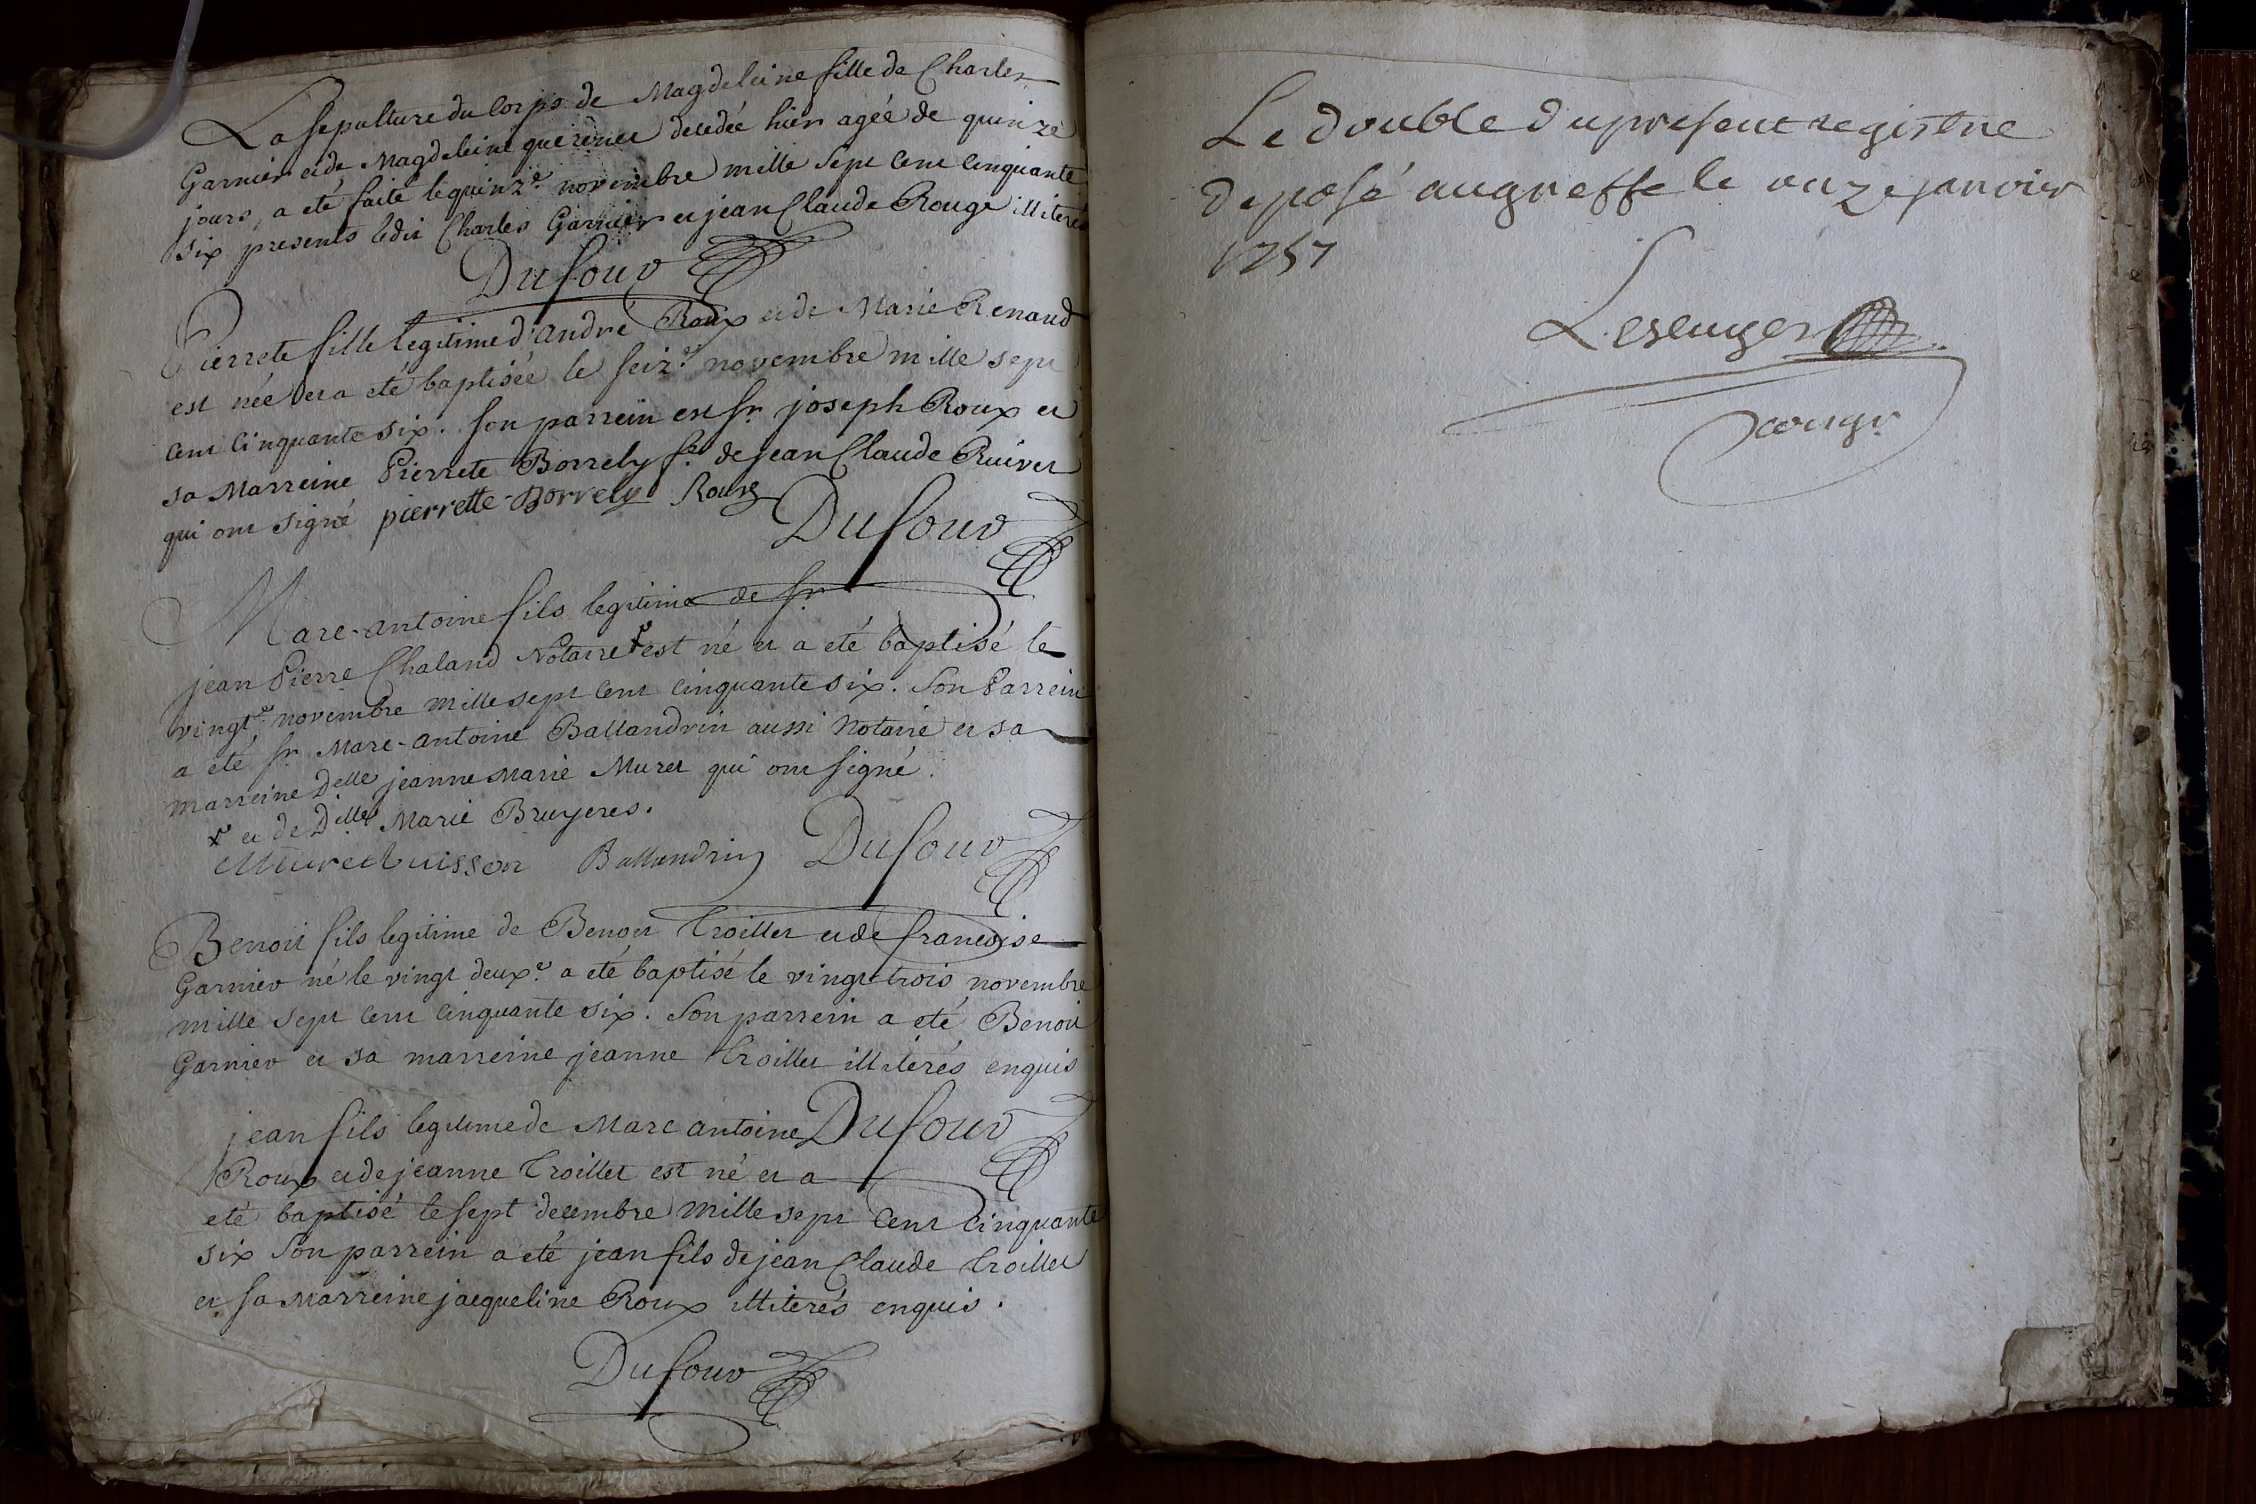 La sepulture du Corps de Magdeleine fille de Charles
Garnier et de Magdeleine decedée hier agée de quinze
jours, a eté faite le quinz.e novembre mille sept cent cinquante
six presents ledit Charles Garnier et jean Claude Rouge illiterés
Dufour
Pierrete fille legitime d'andré Roux et de Marie Renaud
est née et a eté baptisée le seiz.e novembre mille sept
cent cinquante six. son parrein est sr. joseph Roux et
sa Marreine Pierrete Borrely fe. de jean Claude
qui ont signé pierrette Borrely Roux
Dufour
Marc-antoine fils legitime de sr.
jean Pierre Chaland Notaire x est né et a eté baptisé le
vingt.e novembre mille sept cent cinquante six. Son Parrein
a eté sr. Marc-antoine Ballandrin aussi Notaire et sa
marreine Delle jeanne Marie Muret qui ont signé.
x et de Dlle Marie Bruyeres.
Muret buisson Ballandrin Dufour
Benoit fils legitime de Benoit Troillet et de francoise
Garnier né le vingt deux.e a eté baptisé le vingt-trois novembre
mille sept cent cinquante six. Son parrein a eté Benoit
Garnier et sa marreine jeanne Troillet illiterés enquis
Dufour
jean fils legitime de Marc antoine
Roux et de jeanne Troillet est né et a
eté baptisé le sept decembre mille sept cent cinquante
six Son parrein a eté jean fils de jean Claude Troillet
et sa Marreine jacqueline Roux illiterés enquis.
Dufour
Le double du present registre
deposé au greffe le onze janvier
1757